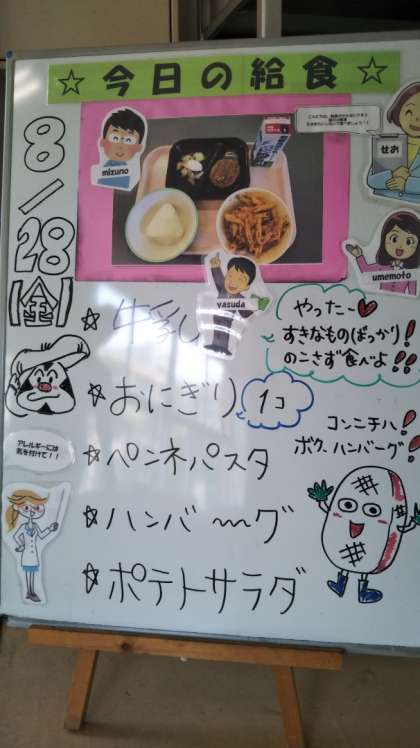 ☆今日の給食☆
8/28
【金】
mizuno
せお
umemoto
yasuda
☆牛乳
☆おにぎり 1コ
☆ペンネパスタ
☆ハンバーグ
☆ポテトサラダ
やったー♥
すきなものばっかり!
のこさず食べよ!!
コンニチハ!
ボク、ハンバーグ!
アレルギーには
気を付けて!!